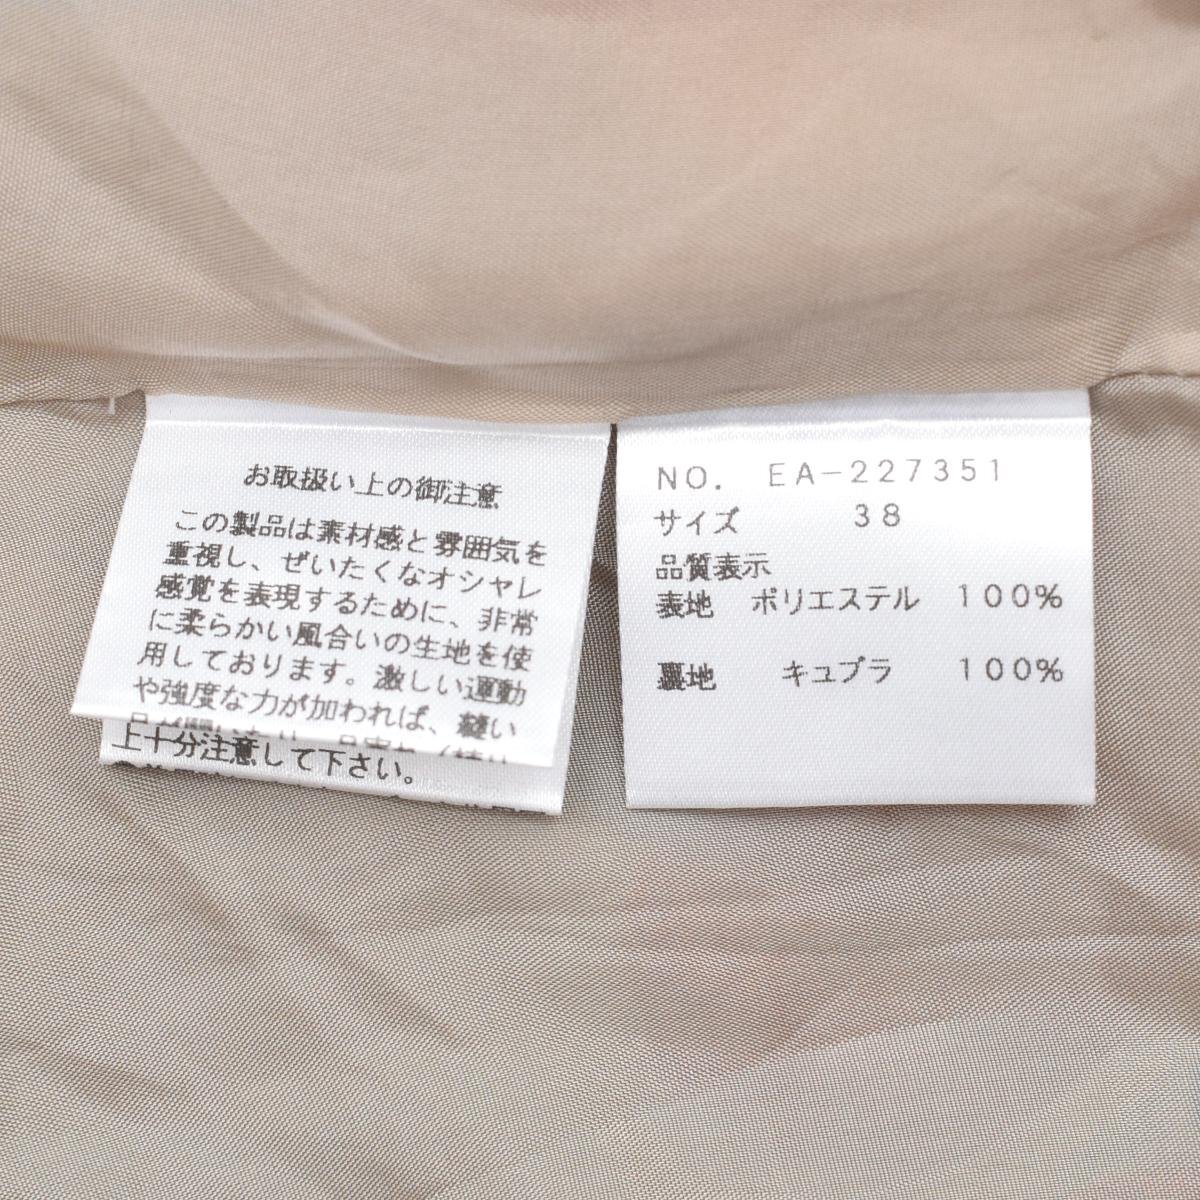 お取扱い上の御注意
この製品は素材感と雰囲気を
重視し、ぜいたくなオシャレ
感覚を表現するために、非常
に柔らかい風合いの生地を使
用しております。激しい運動
や強度な力が加われば、縫い
上十分注意して下さい。
NO. EA-227351
サイズ 38
品質表示
表地 ポリエステル 100%
裏地 キュプラ 100%